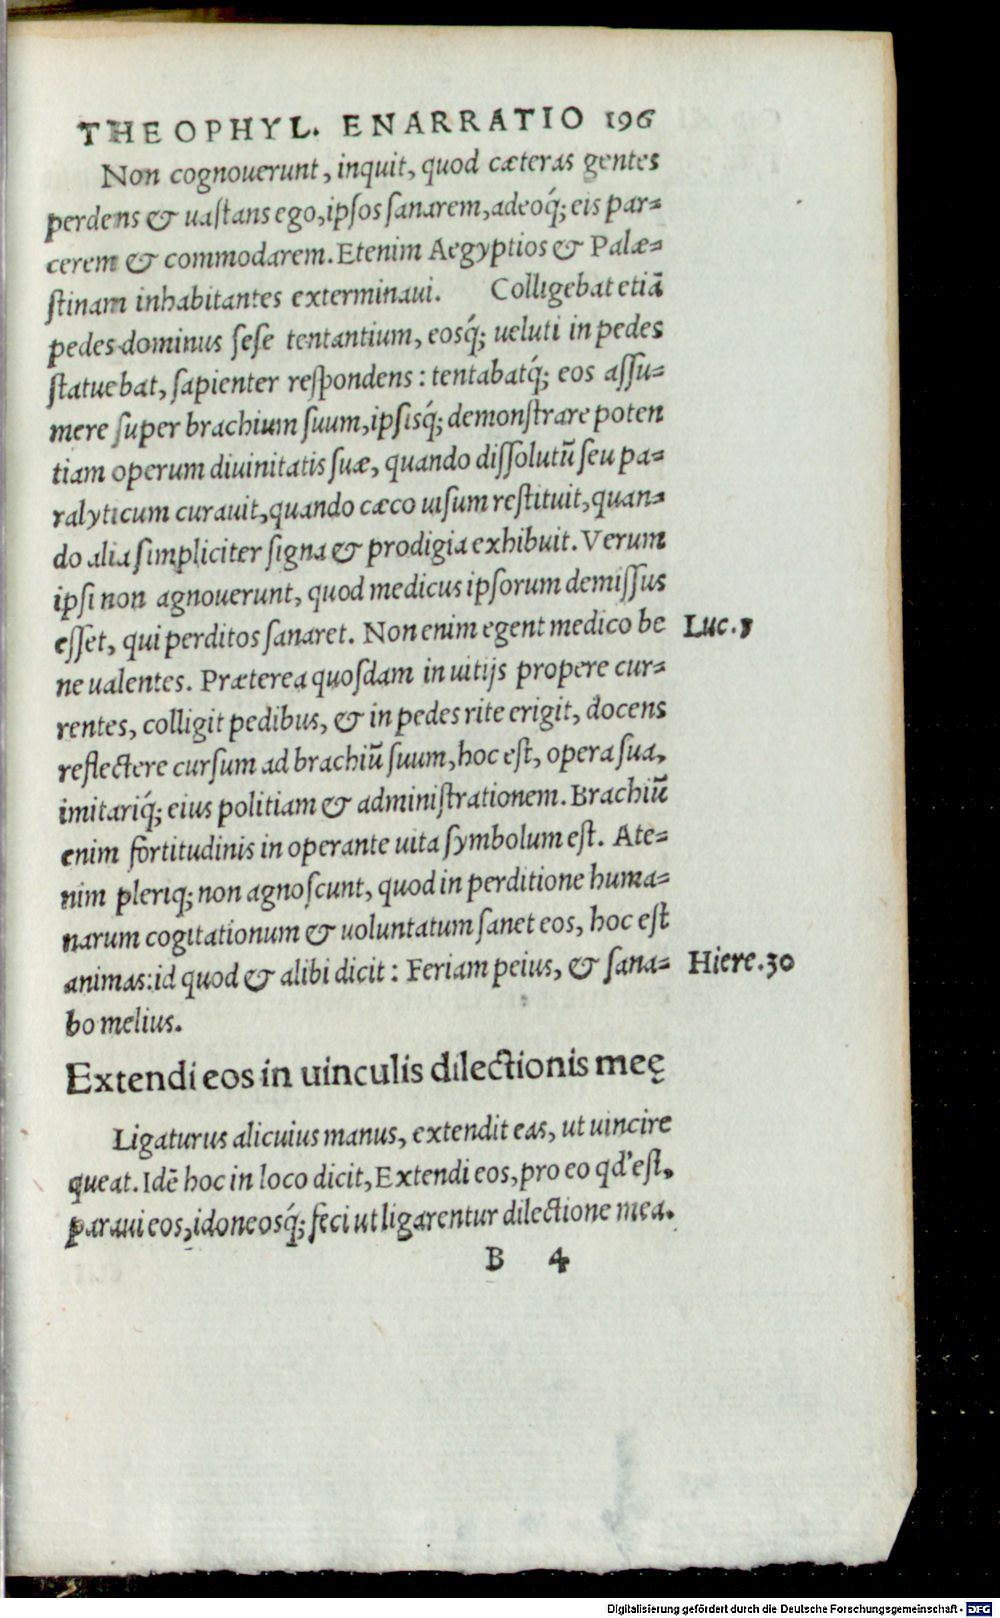 THEOPHYL. ENARRATIO 196
Non cognouerunt, inquit, quod cæteras gentes
perdens & uastans ego, ipsos sanarem, adeoq́; eis par=
cerem & commodarem. Etenim Aegyptios & Palæ=
stinam inhabitantes exterminaui. Colligebat etiã
pedes dominus sese tentantium, eosq́; ueluti in pedes
statuebat, sapienter respondens: tentabatq́; eos assu=
mere super brachium suum, ipsisq́; demonstrare poten
tiam operum diuinitatis suæ, quando dissolutũ seu pa=
ralyticum curauit, quando cæco uisum restituit, quan=
do alia simpliciter signa & prodigia exhibuit. Verum
ipsi non agnouerunt, quod medicus ipsorum demissus
esset, qui perditos sanaret. Non enim egent medico be Luc.
ne ualentes. Præterea quosdam in uitijs propere cur=
rentes, colligit pedibus, & in pedes rite erigit, docens
reflectere cursum ad brachiũ suum, hoc est, opera sua,
imitariq́; eius politiam & administrationem. Brachiũ
enim fortitudinis in operante uita symbolum est. Ate=
nim pleriq; non agnoscunt, quod in perditione huma=
narum cogitationum & uoluntatum sanet eos, hoc est
animas: id quod & alibi dicit: Feriam peius, & sana= Hiere.30
bo melius.
Extendi eos in uinculis dilectionis meę
Ligaturus alicuius manus, extendit eas, ut uincire
queat. Idẽ hoc in loco dicit, Extendi eos, pro eo qd' est,
paraui eos, idoneosq́; feci ut ligarentur dilectione mea.
B 4
Digitalisierung gefördert durch die Deutsche Forschungsgemeinschaft - DFG